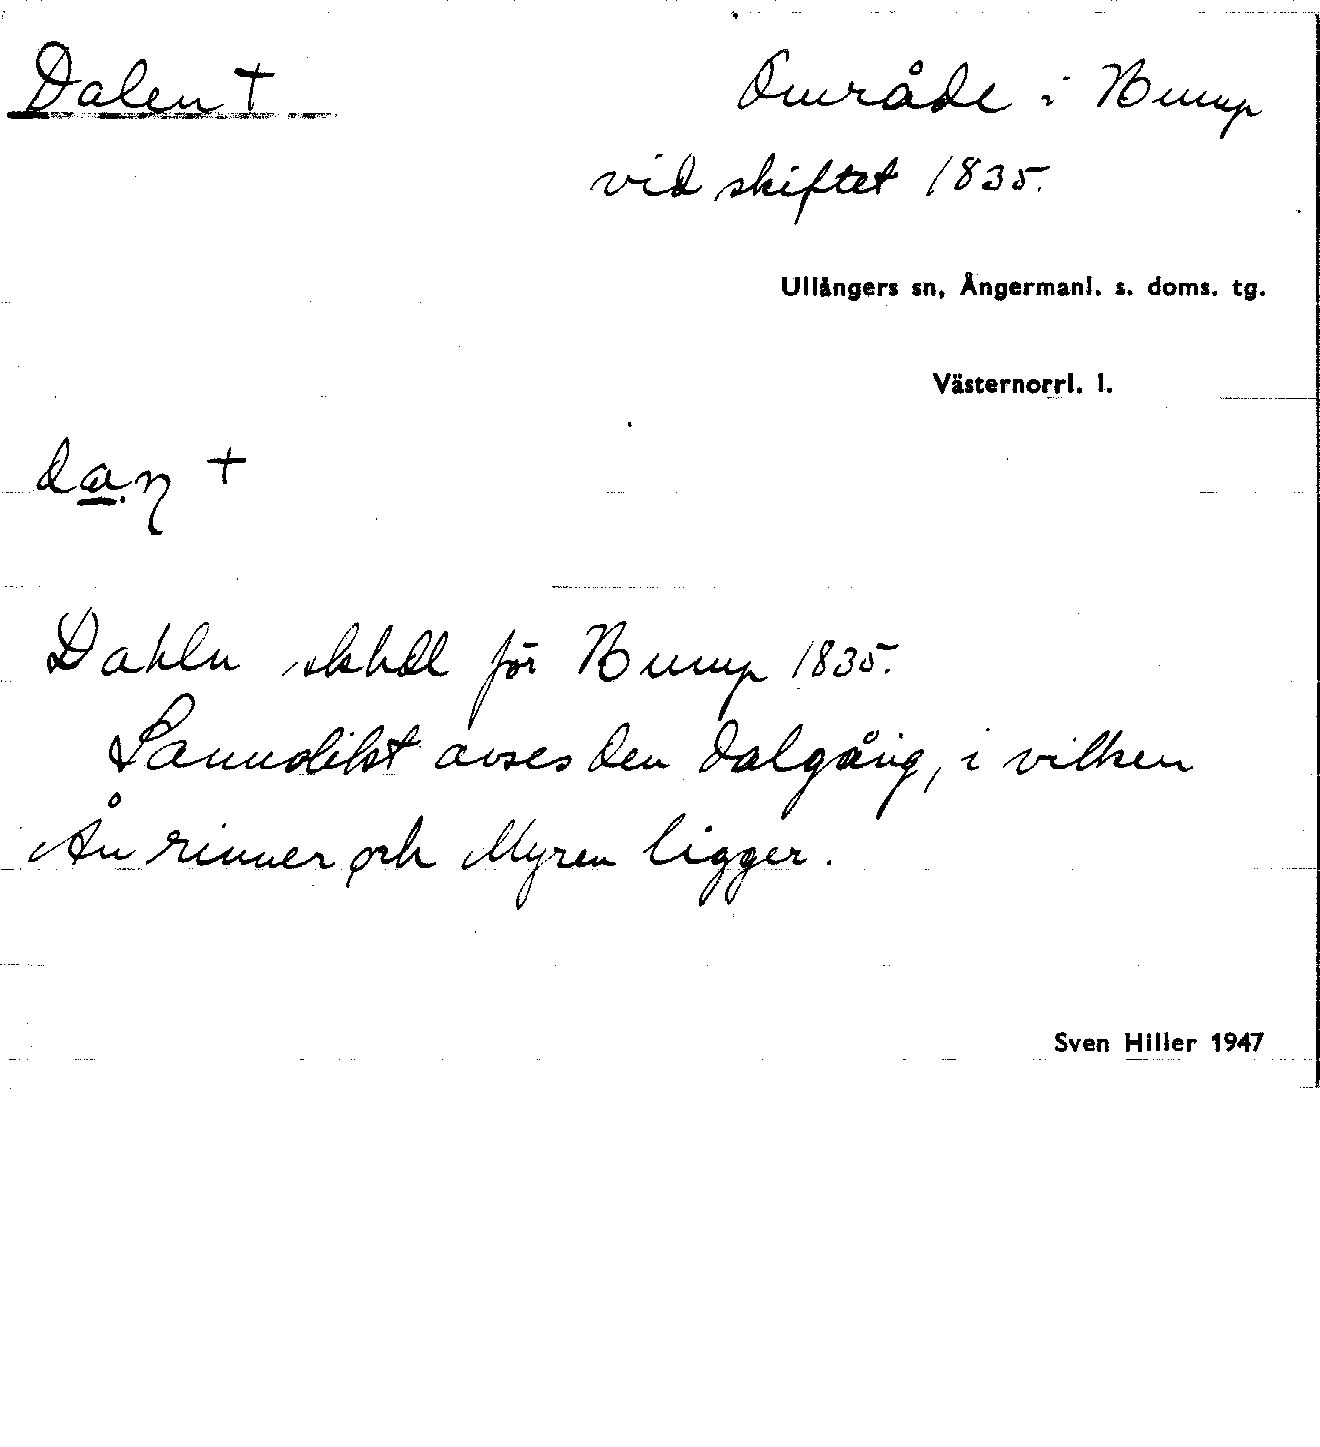 Dalen +
Område i Bump
vid skiftet 1835.
Ullångers sn, Ångermanl. s. doms. tg.
Västernorrl. l.
+
Dahln skhdl för Bump 1835.
Sannolikt avses den dalgång, i vilken
Ån rinner och Myren ligger.
Sven Hiller 1947